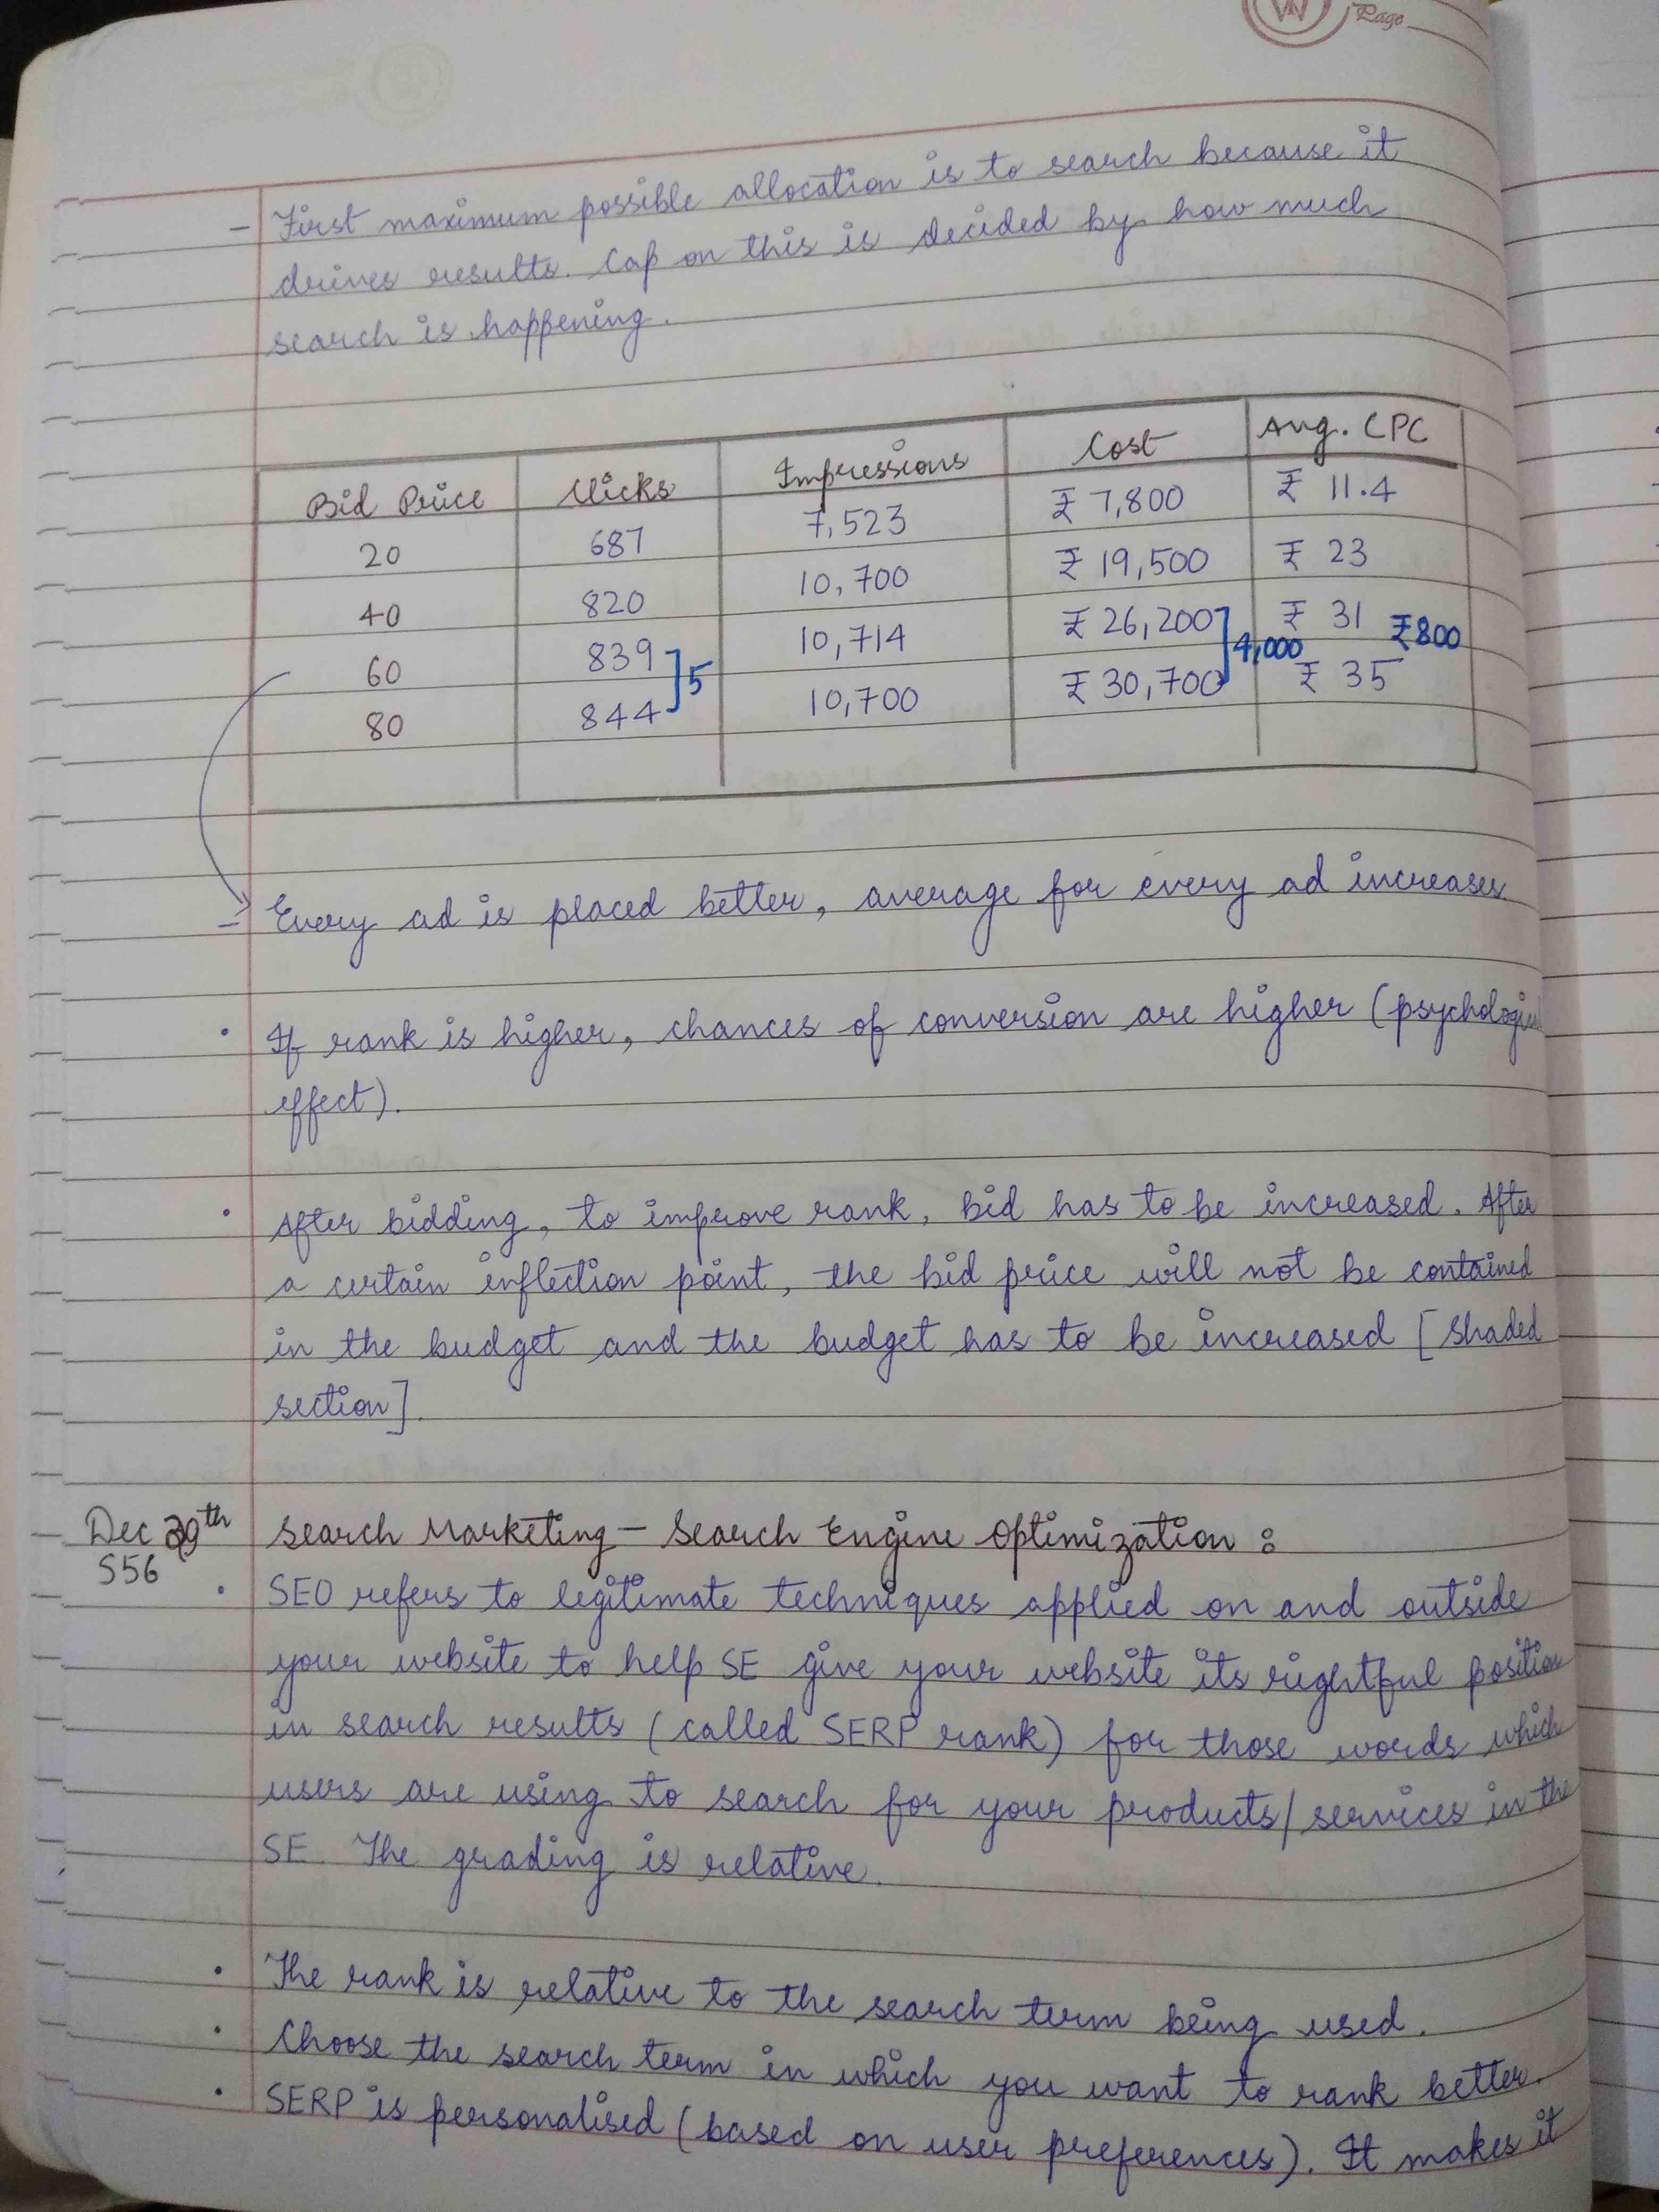 Page
- First maximum possible allocation is to search because it
drives results. Cap on this is decided by how much
search is happening.
Bid Price Clicks Impressions Cost Avg. CPC
20 687 7,523 ₹ 7,800 ₹ 11.4
40 820 10,700 ₹ 19,500 ₹ 23
60 839 10,714 ₹ 26,200 ₹ 31
5 4,000 ₹800
80 844 10,700 ₹ 30,700 ₹ 35
- Every ad is placed better, average for every ad increases.
• If rank is higher, chances of conversion are higher (psychological
effect).
• After bidding, to improve rank, bid has to be increased. After
a certain inflection point, the bid price will not be contained
in the budget and the budget has to be increased [shaded
section].
Dec 29th Search Marketing – Search Engine Optimization :
S56
• SEO refers to legitimate techniques applied on and outside
your website to help SE give your website its rightful position
in search results (called SERP rank) for those words which
users are using to search for your products/services in the
SE. The grading is relative.
• The rank is relative to the search term being used.
• Choose the search term in which you want to rank better.
• SERP is personalised (based on user preferences). It makes it